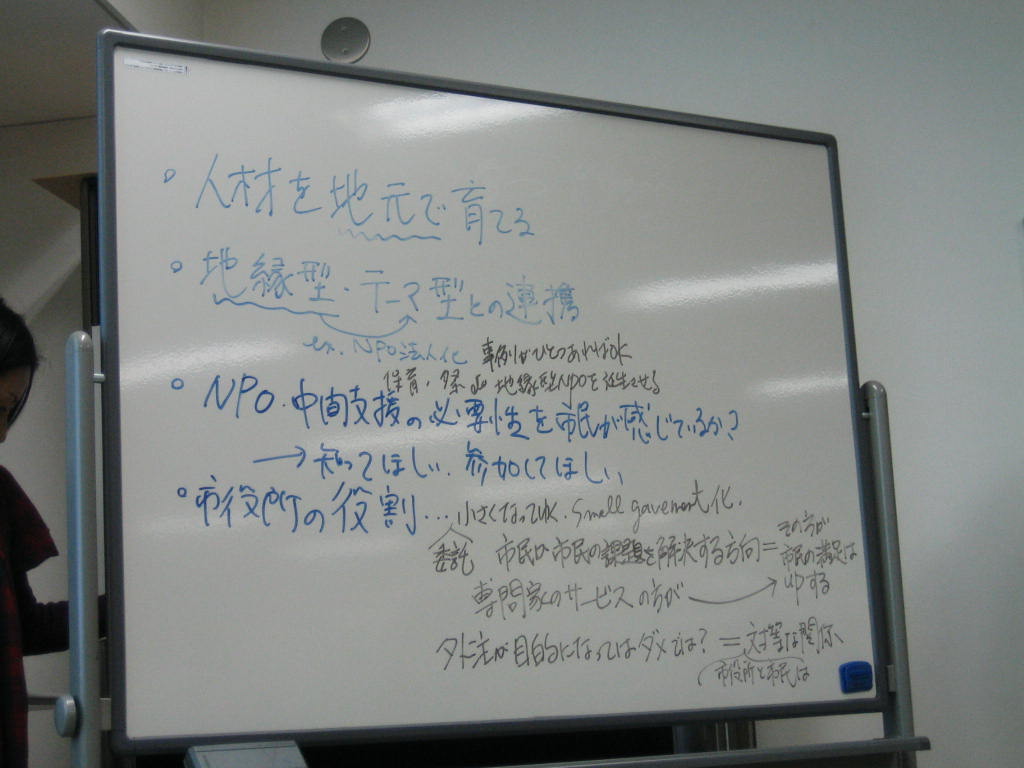 ・人材を地元で育てる
・地縁型・テーマ型との連携
ex. NPO法人化 事例がひとつあればOK
保育・祭 地縁型NPOを誕生させる
・NPO・中間支援の必要性を市民が感じているか?
→知ってほしい、参加してほしい
・市役所の役割…小さくなってOK. Small goverment化.
委託 市民は市民の課題を解決する方向=その方が市民の満足はUPする
専門家のサービスの方が
外注が目的になってはダメでは? =対等な関係、
市役所と市民は